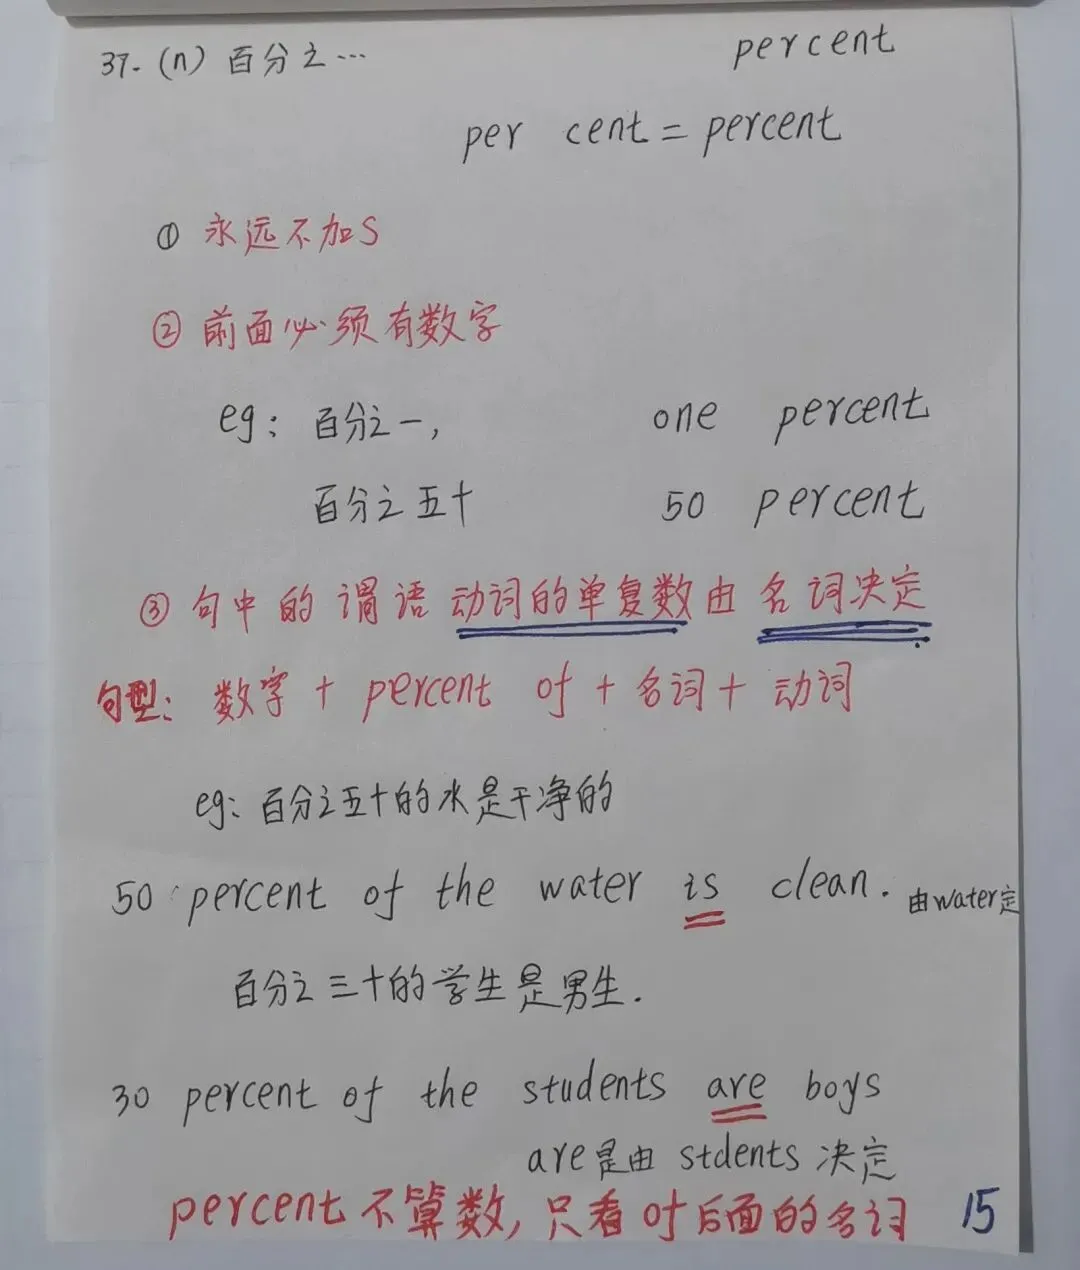 37. (n) 百分之… percent
per cent = percent
① 永远不加s
② 前面必须有数字
eg: 百分之一, one percent
百分之五十 50 percent
③ 句中的谓语动词的单复数由名词决定
句型: 数字 + percent of + 名词 + 动词
eg: 百分之五十的水是干净的
50 percent of the water is clean. 由water定
百分之三十的学生是男生.
30 percent of the students are boys
are是由 stdents 决定
percent不算数,只看of后面的名词 15